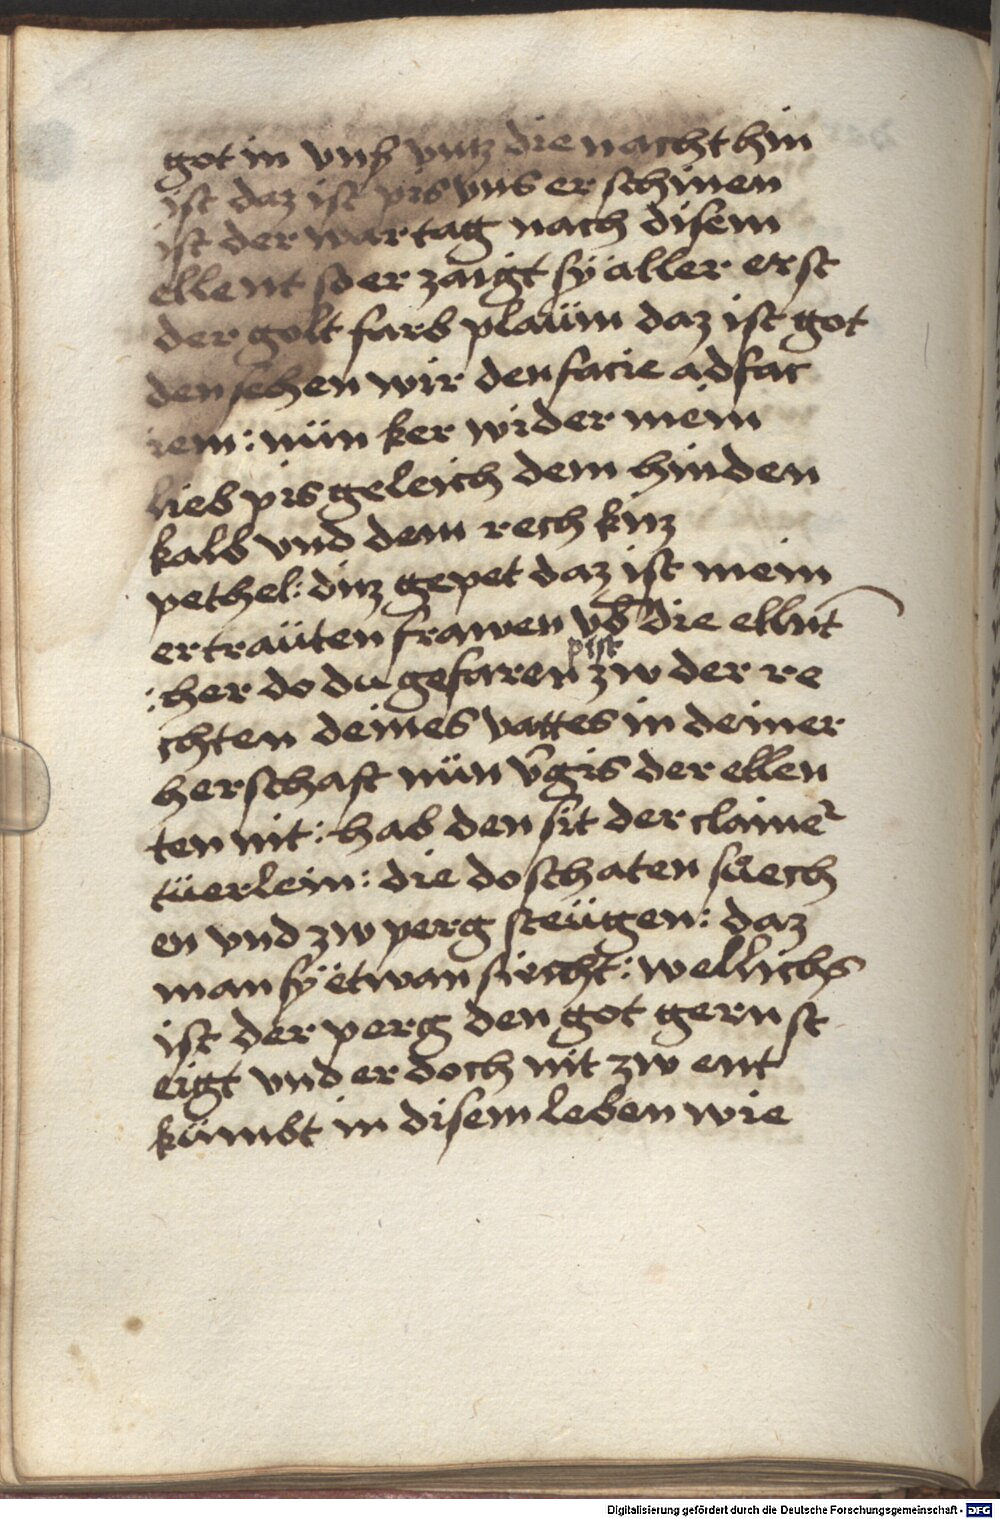 got in vnß vntz die nacht hin
ist daz ist pis vns er schinen
ist der war tag nach disem
ellent so er zaigt sÿ aller erst
der golt farb plaüm daz ist got
den sehen wir den facie ad fac
iem : nün ker wider mein
lieb pis geleich dem hinden
kalb vnd dem rech kitz
pethel : ditz gepet daz ist mein
er traüten frawen vb̄ die ellnt̄
: her do du gefaren pist zw der re
chten deines vattes in deiner
herschaft nün v̄gis der ellen
ten nit : hab den sit der clainer
tüerlein : die do schaten suͤech
en vnd zw perg steügen : daz
man sÿ etwan siecht : wellichs
ist der perg den got gern st
eigt vnd er doch nit zw ent
kümbt in disem leben wie
Digitalisierung gefördert durch die Deutsche Forschungsgemeinschaft - DFG